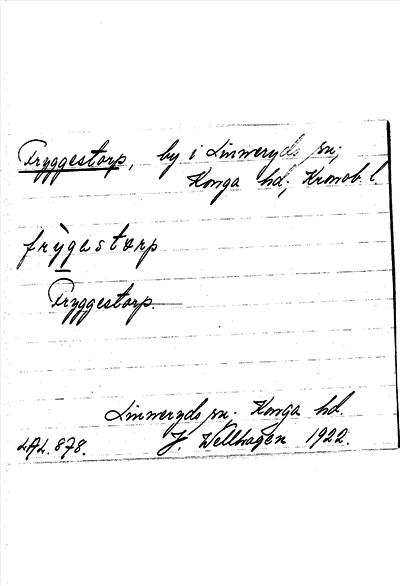 Tryggestorp, by i Linneryds sn;
Konga hd; Kronob. l.
frỳgastɷrp
Tryggestorp.
Linneryds sn. Konga hd.
LAL. 878. J. Wellhagen 1922.